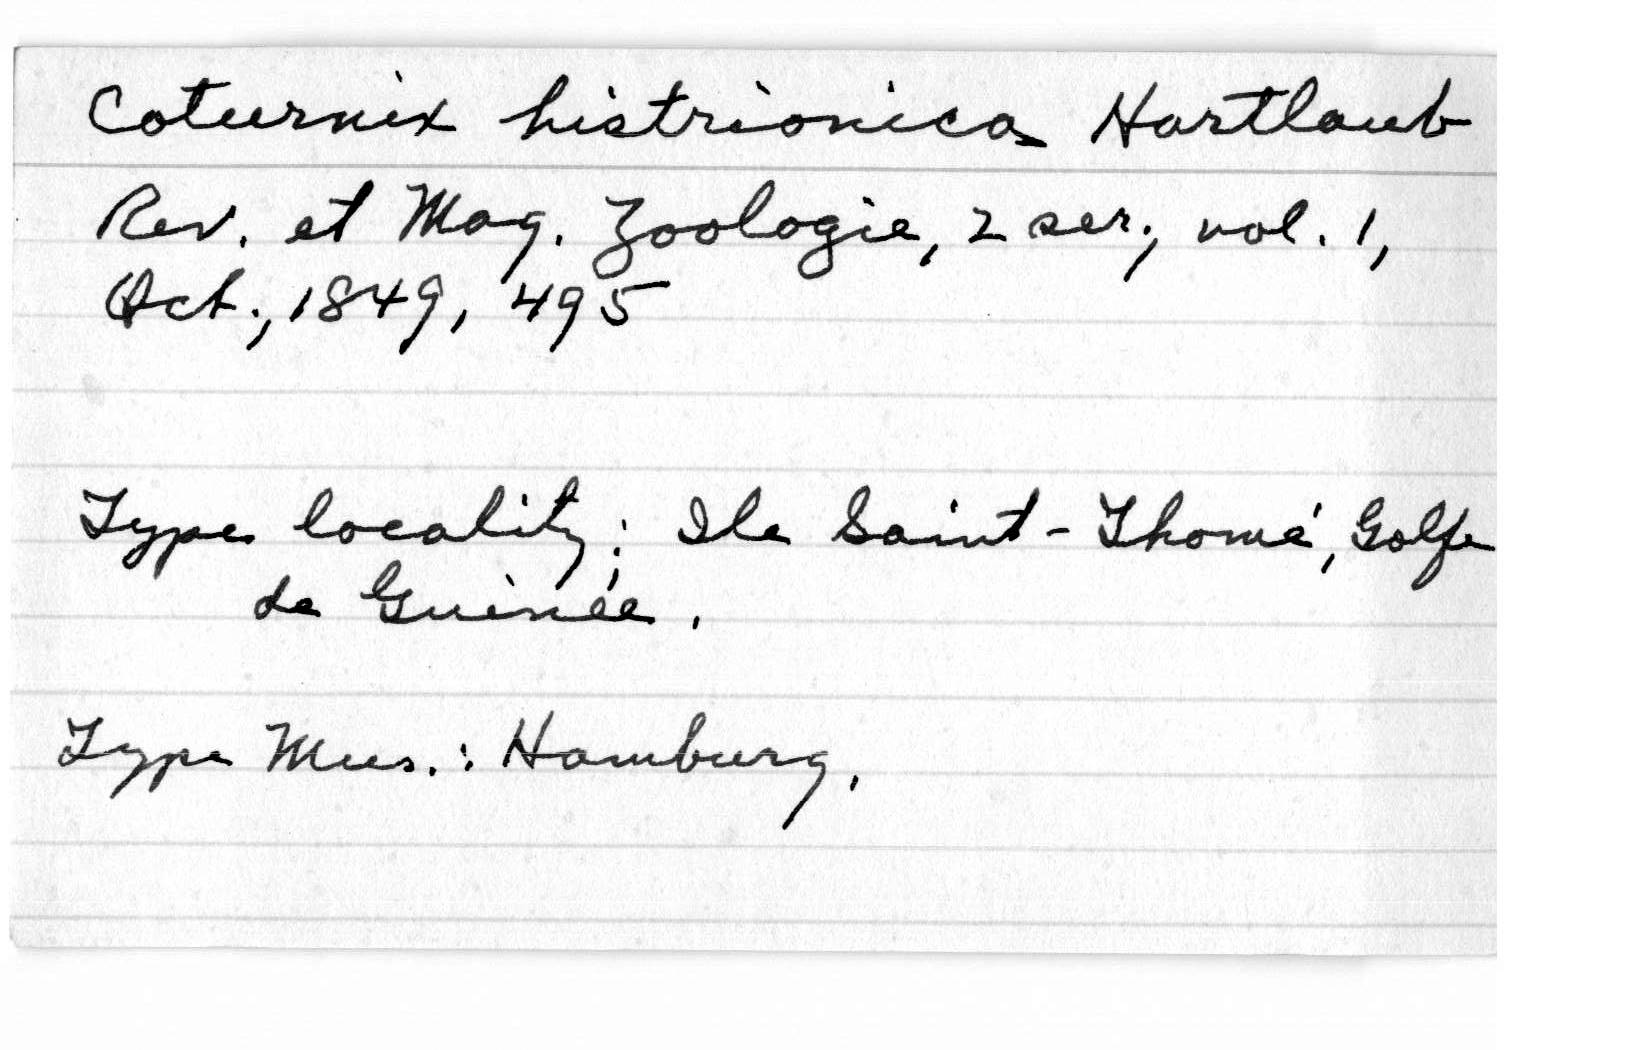 Coturnix histrionica Hartlaub
Rev. et Mag. Zoologie, 2 ser., vol. 1,
Oct., 1849, 495
Type locality: Ile Saint-Thomé, Golfe
de Guinée.
Type Mus.: Hamburg.